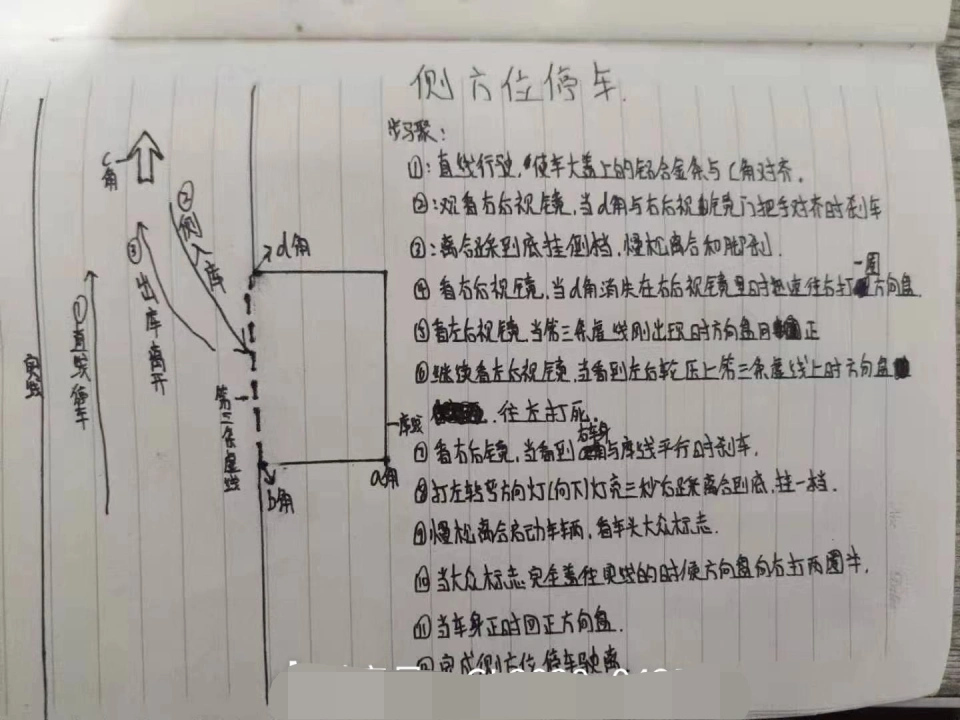 侧方位停车.
步骤：
①：直线行驶，使车大盖上的铝合金条与C角对齐.
②：观看右后视镜，当d角与右后视镜门把手对齐时刹车
③：离合踩到底挂倒档，慢松离合和脚刹.
一圈
④看右后视镜，当d角消失在右后视镜里时迅速往右打方向盘.
⑤看左后视镜，当第三条虚线刚出现时方向盘回正
⑥继续看左后视镜，当看到左后轮压上第三条虚线上时方向盘
，往左打死.
右车身
⑦看右后镜，当看到与库线平行时刹车.
⑧打左转弯方向灯(向下)灯亮三秒后踩离合到底，挂一档.
⑨慢松离合启动车辆，看车头大众标志.
⑩当大众标志完全盖住实线的时便方向盘向右打两圈半.
⑪当车身正时回正方向盘.
完成侧方位停车驶离
C角
②倒入库
③出库离开
①直线停车
实线
d角
第三条虚线
库线
b角
a角